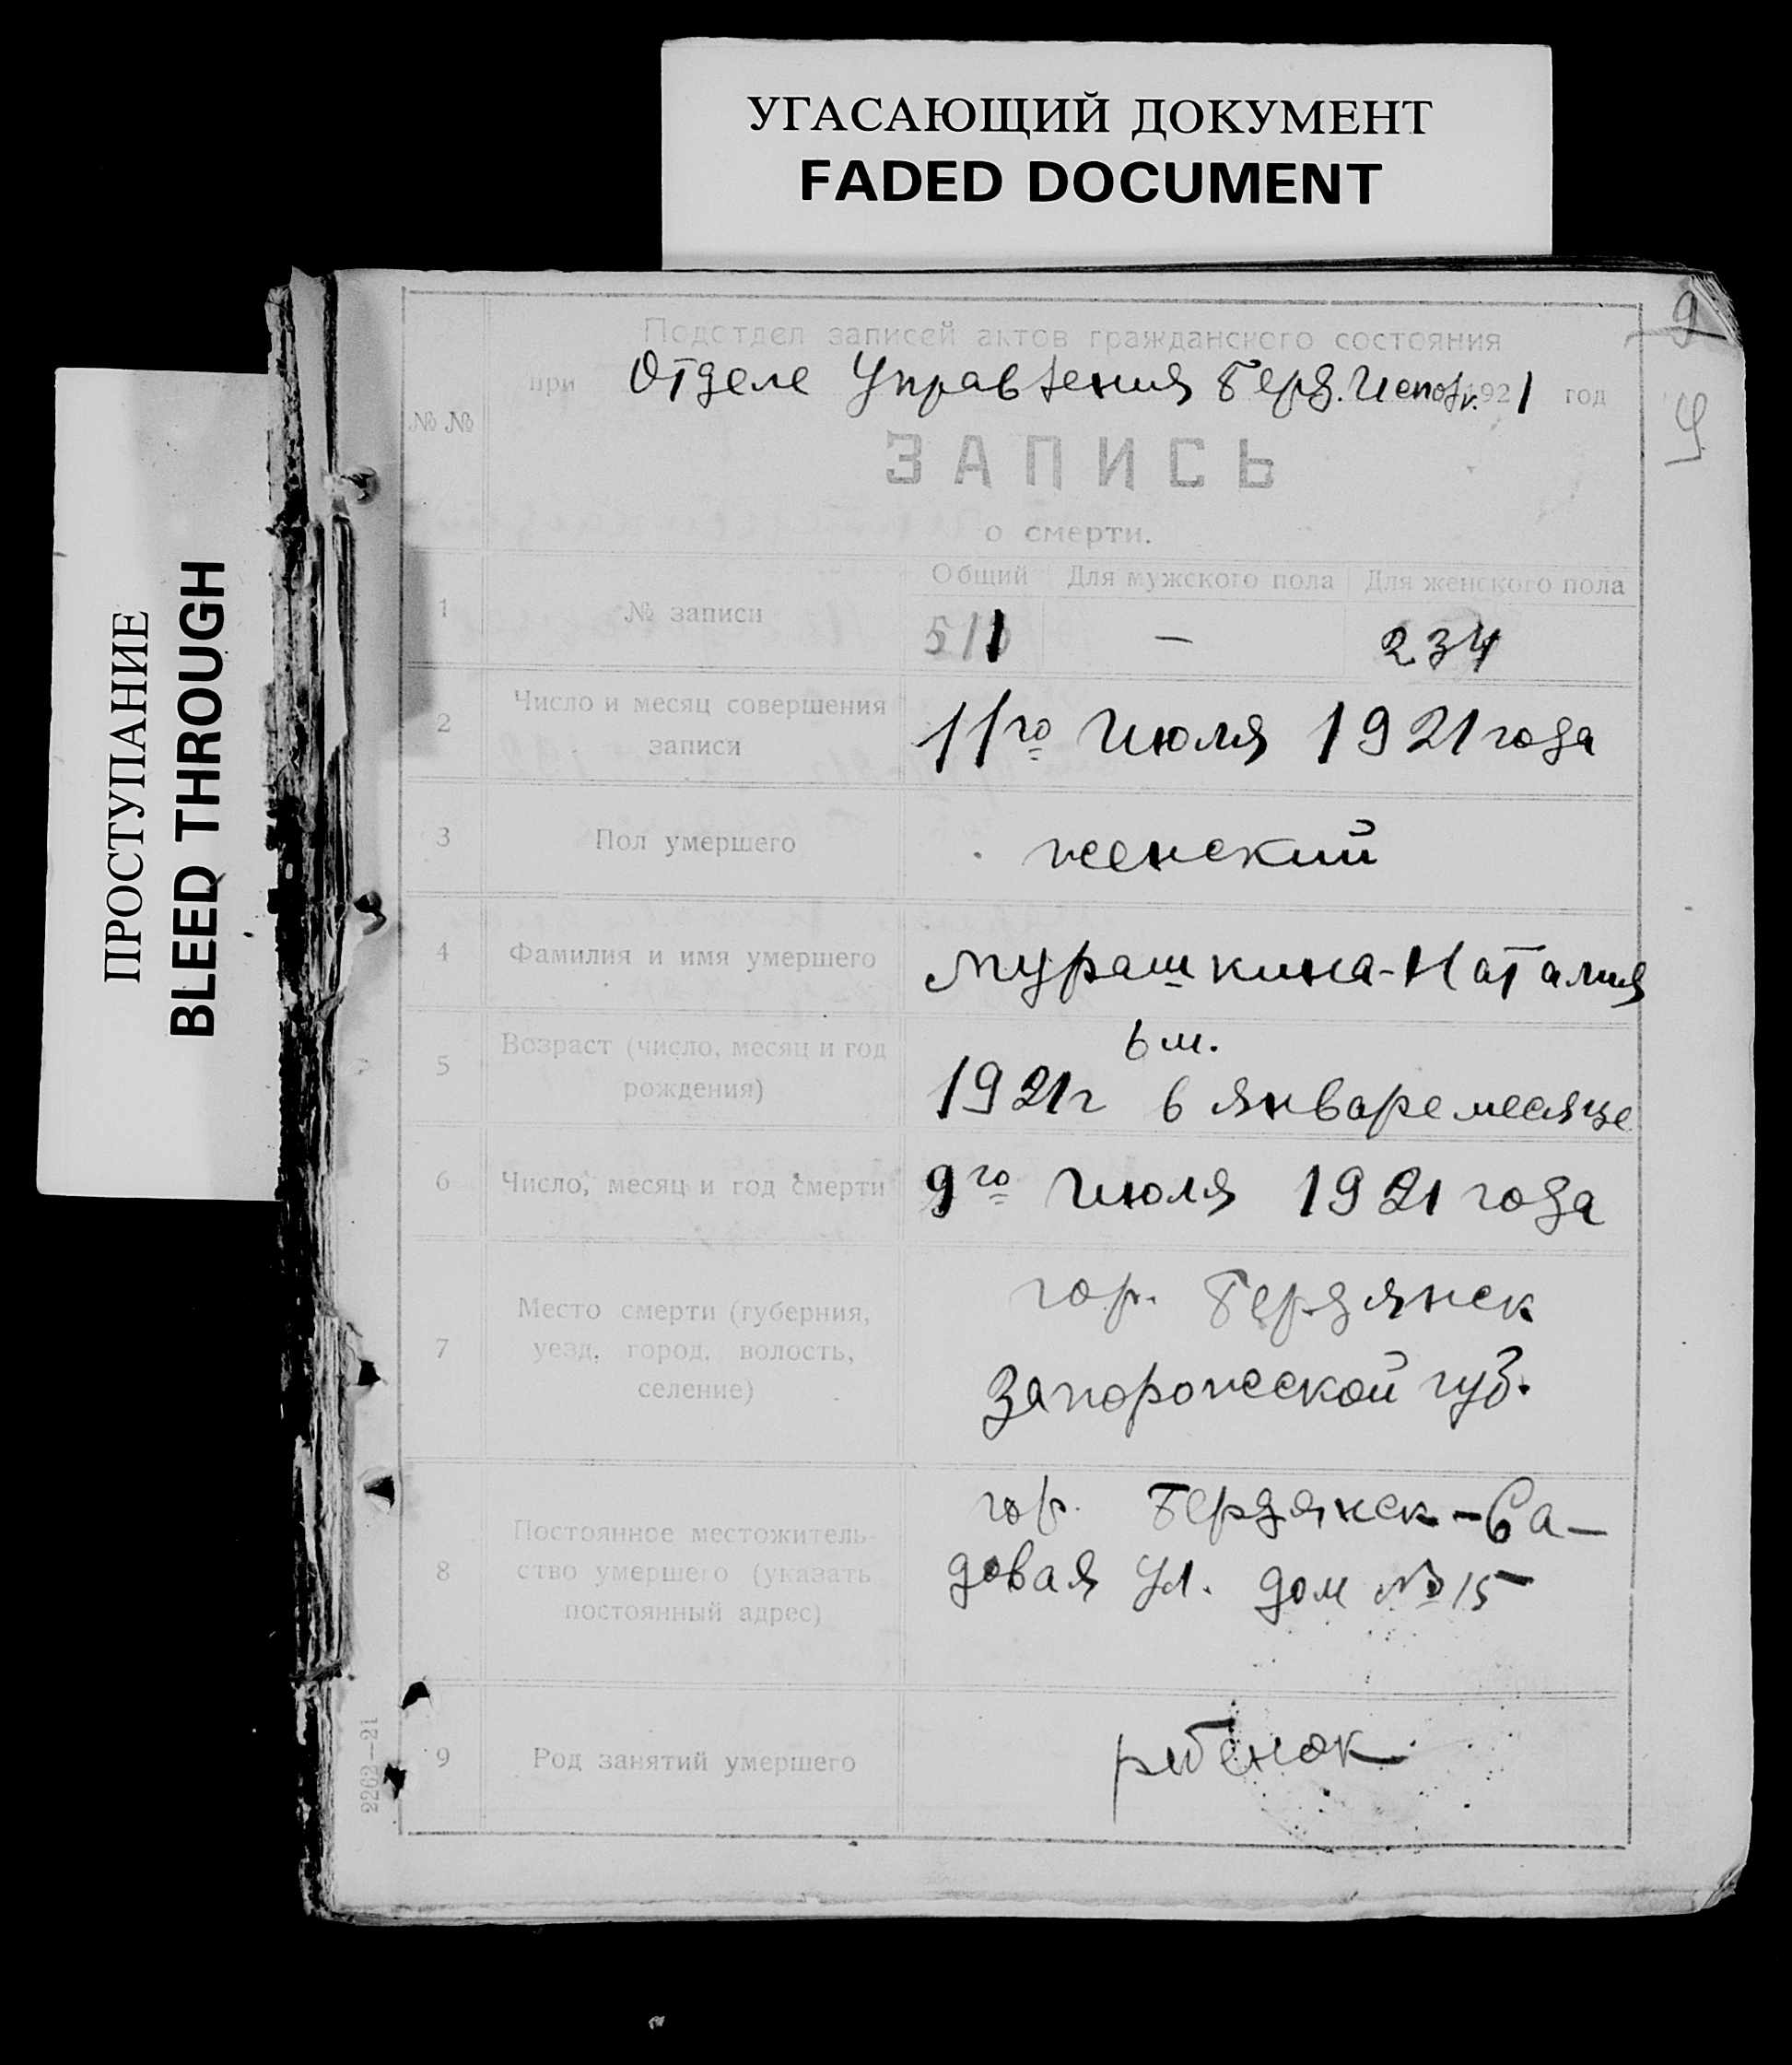 УГАСАЮЩИЙ ДОКУМЕНТ
FADED DOCUMENT
ПРОСТУПАНИЕ
BLEED THROUGH
9
9
Подотдел записей актов гражданского состояния
при Отделе Управления Берд. 1921 год
№ №
ЗАПИСЬ
о смерти.
Общий Для мужского пола Для женского пола
1 № записи 511 — 234
2 Число и месяц совершения
записи
11го Июля 1921 года
3 Пол умершего женский
4 Фамилия и имя умершего Мурашкина-Наталия
5 Возраст (число, месяц и год
рождения)
6 м.
1921 г в январе месяце
6 Число, месяц и год смерти 9го Июля 1921 года
7 Место смерти (губерния,
уезд, город, волость,
селение)
гор. Бердянск
Запорожской губ.
8 Постоянное местожитель-
ство умершего (указать
постоянный адрес)
гор. Бердянск - Са-
довая ул. дом № 15
9 Род занятий умершего ребенок
2262—21